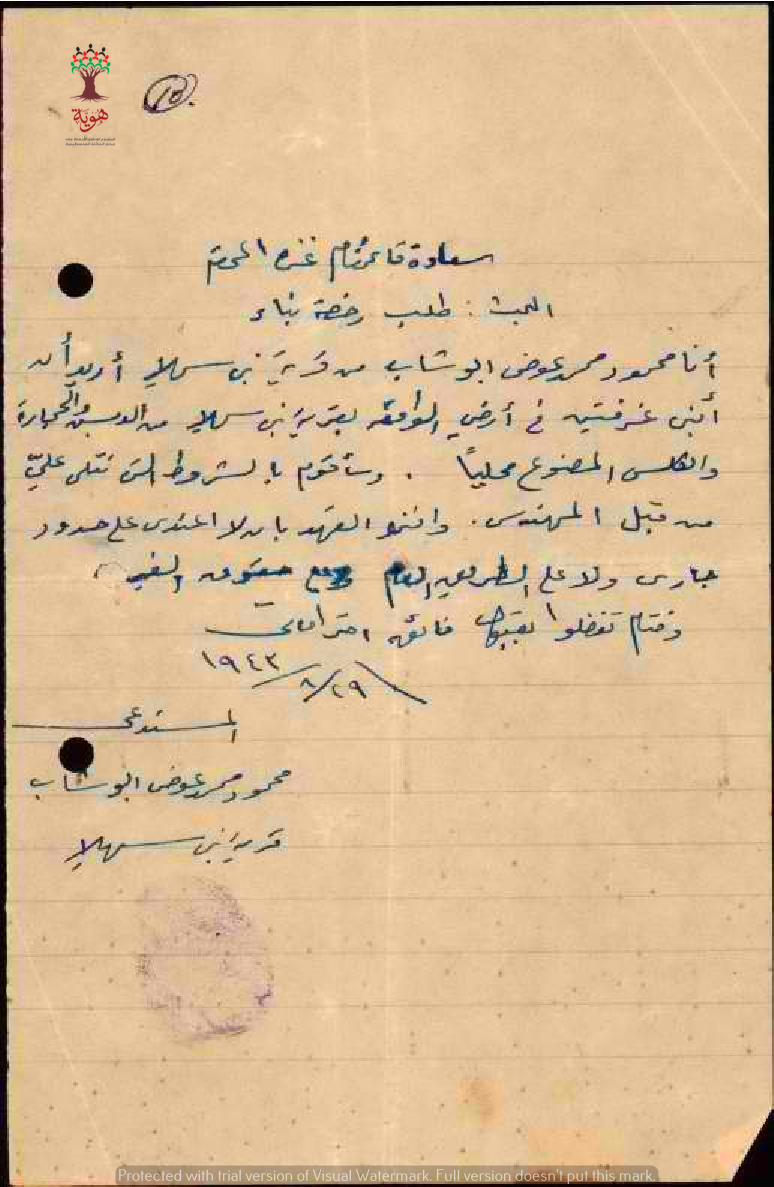 هوية
١٥
سعادة قائمقام غزه المحترم
البحث : طلب رخصة بناء
أنا محمود محمد عوض ابو شاب من قرية بني سهيلا أريد أن
أبني غرفتين في أرضي الواقعه بقرية بني سهيلا من الدبش والحجارة
والكلس المصنوع محلياً . وسأقوم بالشروط التي تتلى عليّ
من قبل المهندس. واننى اتعهد بان لا اعتدى على حدود
جارى ولا على الطريق العام وعلى حقوق الغير
وختام تفضلوا بقبول فائق احتراماتى
٢٩/٨/١٩٤٣
المستدعى
محمود محمد عوض ابو شاب
قرية بني سهيلا
Protected with trial version of Visual Watermark. Full version doesn't put this mark.